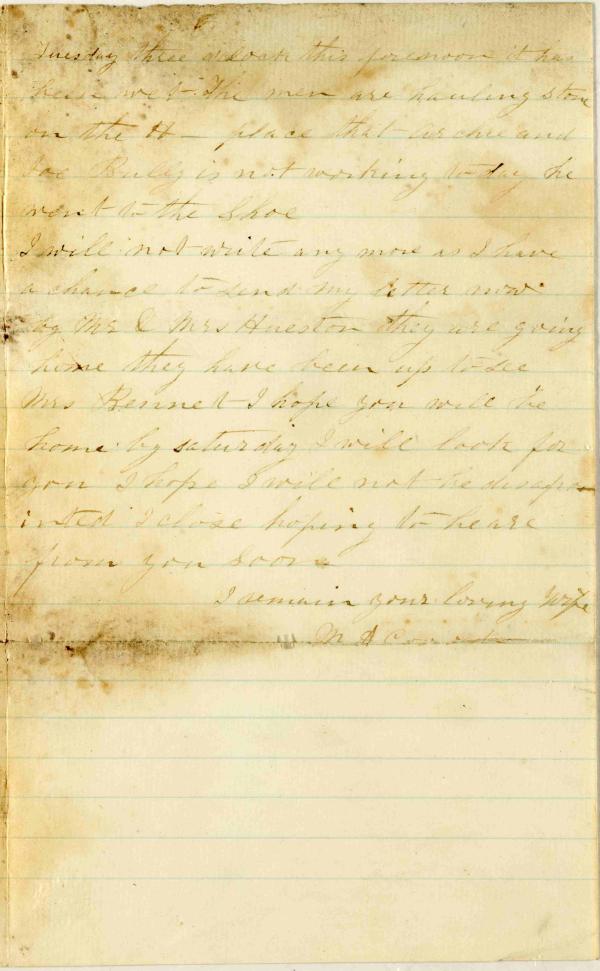 Tuesday three oclock this forenoon it has
been wet The men are hauling stone
on the H — place that Archie and
Joe is not working to day he
went to the Shoe
I will not write any more as I have
a chance to send my letter now
by Mr & Mrs Hueston they are going
home they have been up to see
Mrs Bennet I hope you will be
home by saturday I will look for
you I hope I will not be disapo
inted I close hoping to heare
from you soon
I remain your loving Wife
M A